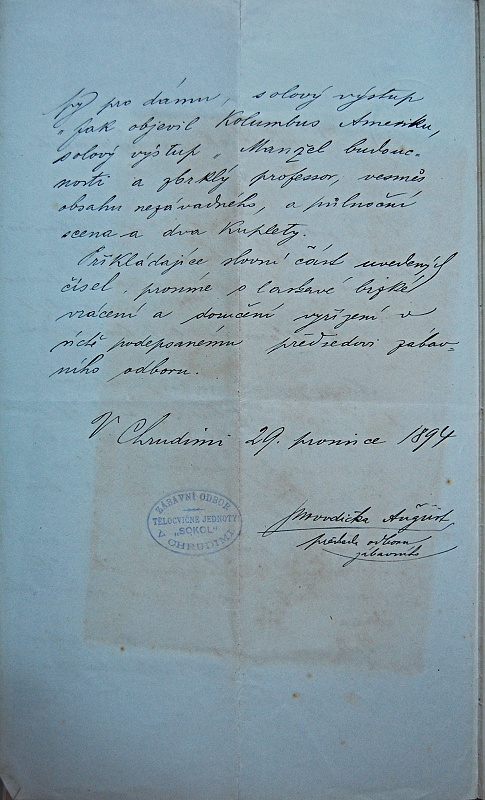 pro dámu, solový výstup
„Jak objevil Kolumbus Ameriku,
solový výstup „Manžel budouc-
nosti a zbrklý professor, vesměs
obsahu nezávadného, a půlnoční
scena a dva kuplety.
Přikládajíce slovní část uvedených
čísel, prosíme o laskavé brzké
vrácení a doručení vyřízení v
úctě podepsanému předsedovi zábav-
ního odboru.
V Chrudimi 29. prosince 1894
August
předseda odboru
zábavního
ZÁBAVNÍ ODBOR
TĚLOCVIČNÉ JEDNOTY
„SOKOL“
V CHRUDIMI